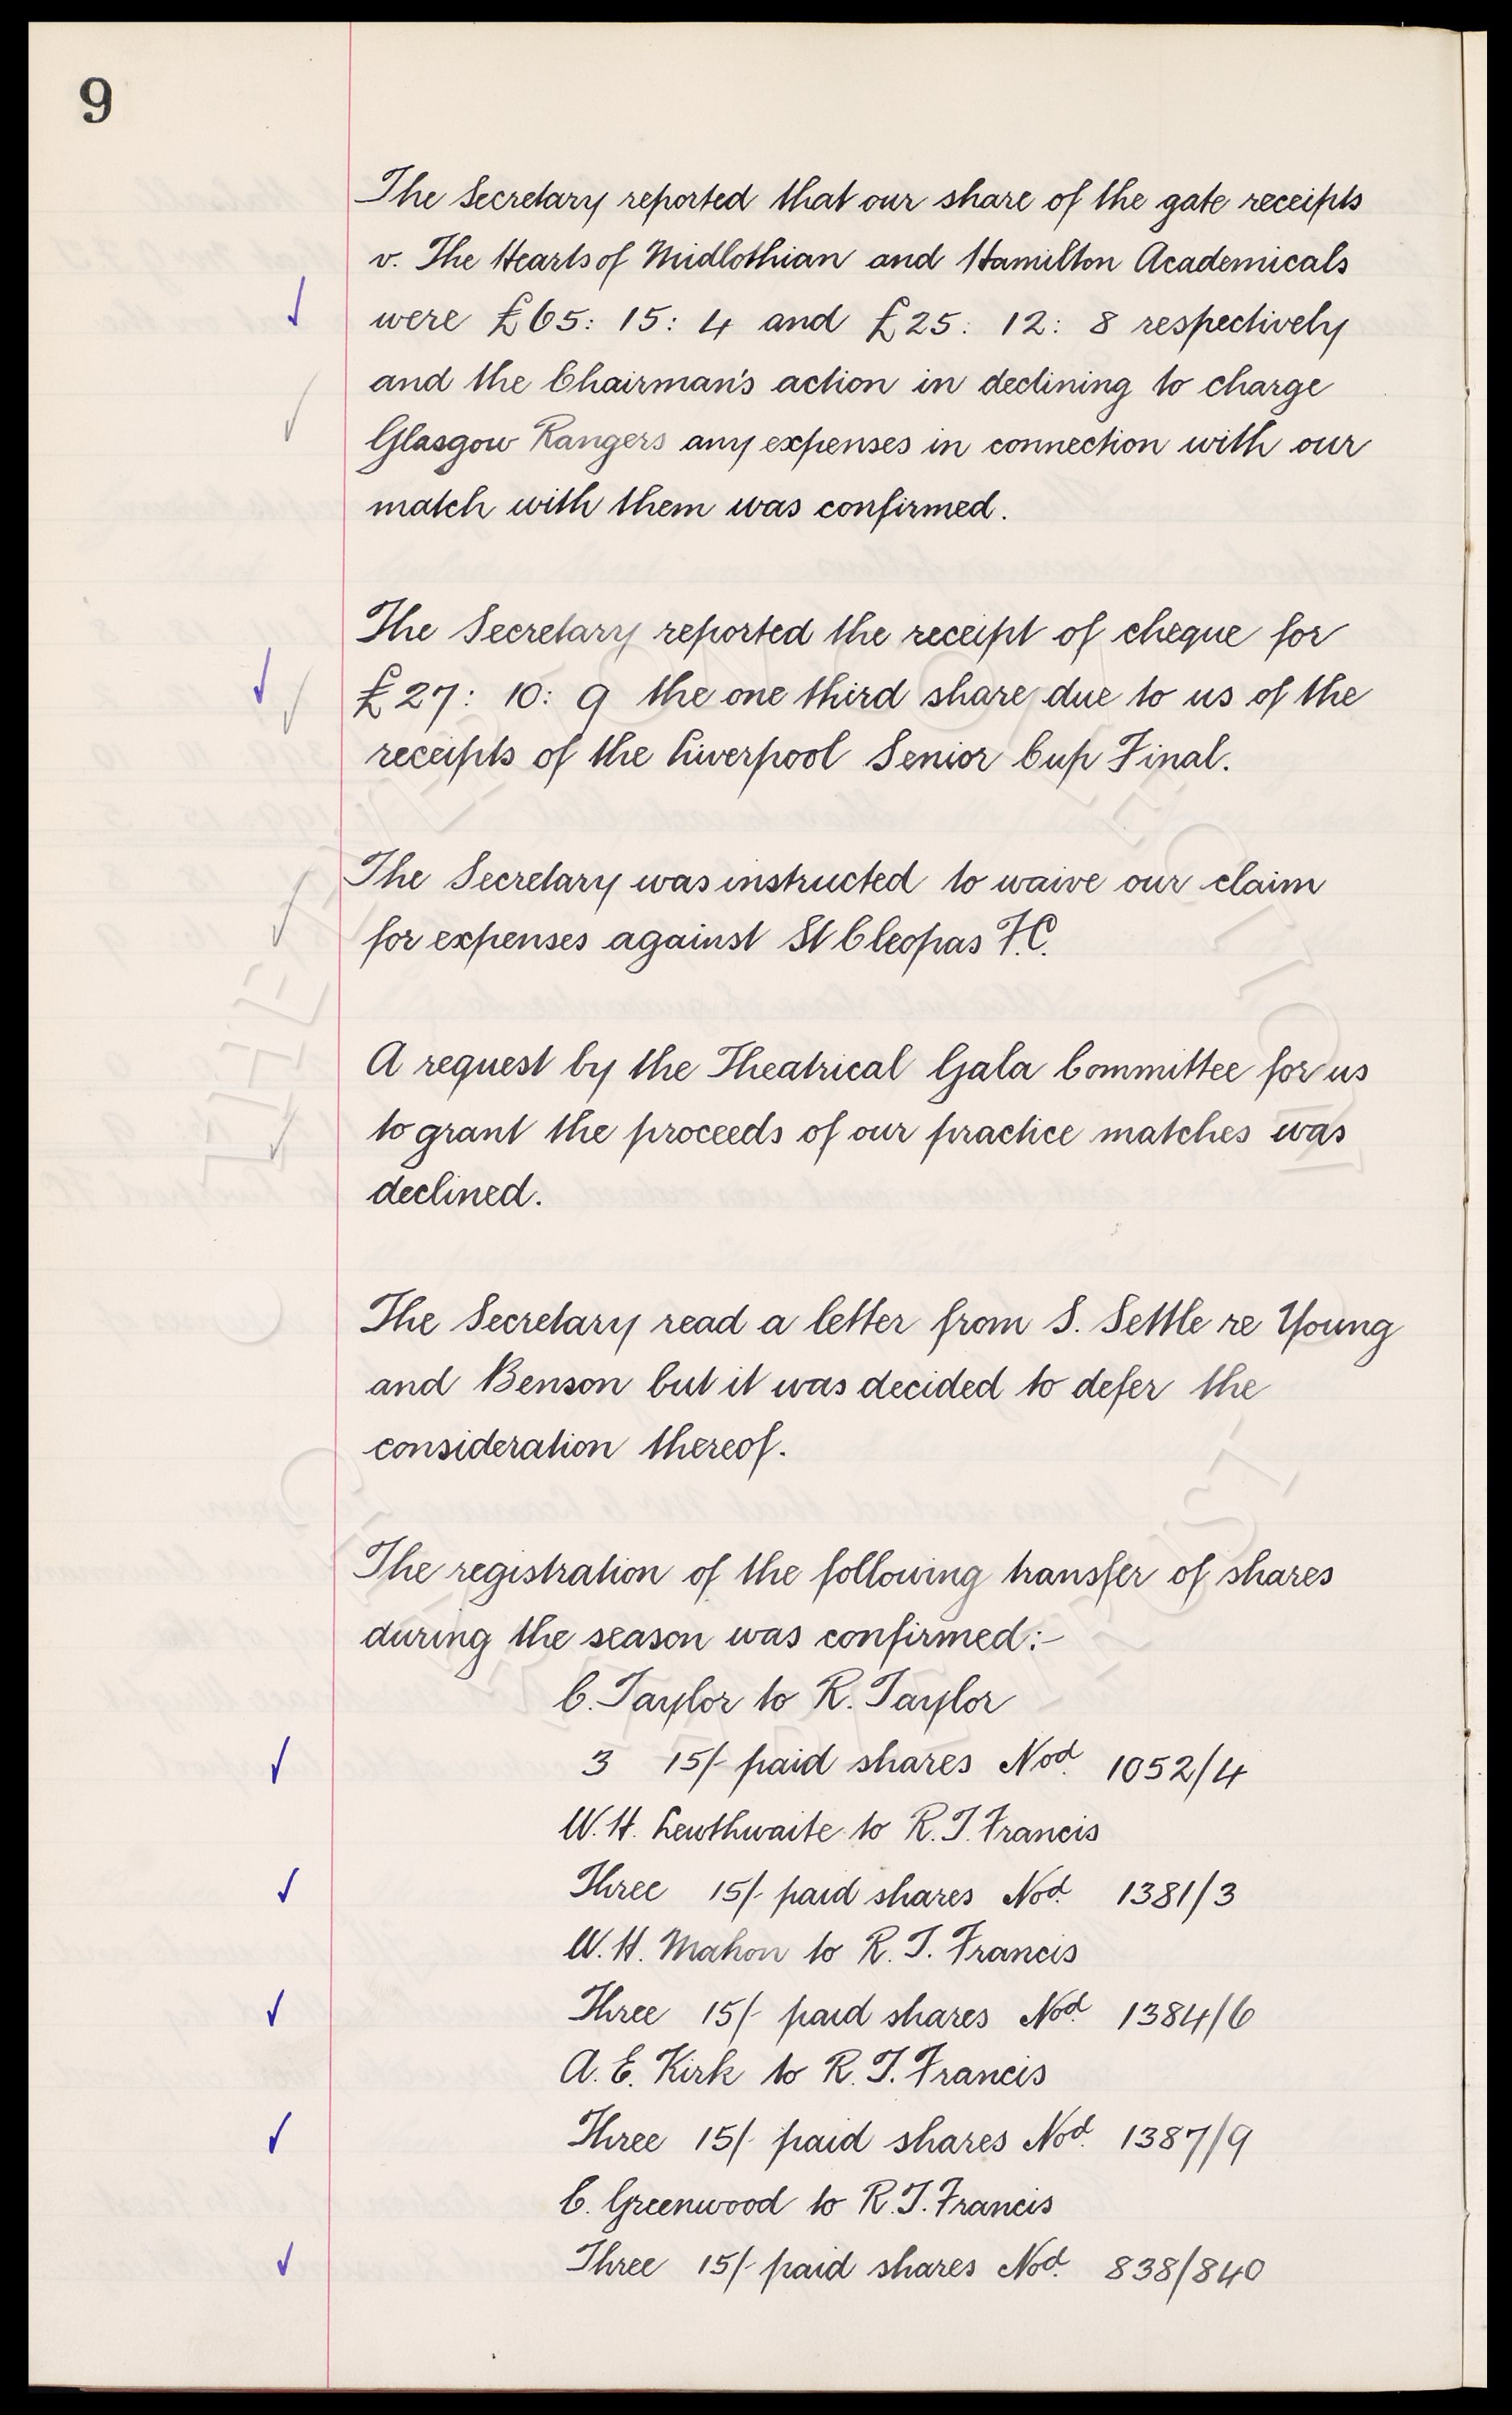 9
The Secretary reported that our share of the gate receipts
v. The Hearts of Midlothian and Hamilton Academicals
were £65: 15: 4 and £25: 12: 8 respectively
and the Chairman's action in declining to charge
Glasgow Rangers any expenses in connection with our
match with them was confirmed.
The Secretary reported the receipt of cheque for
£27: 10: 9 the one third share due to us of the
receipts of the Liverpool Senior Cup Final.
The Secretary was instructed to waive our claim
for expenses against St Cleopas F.C.
A request by the Theatrical Gala Committee for us
to grant the proceeds of our practice matches was
declined.
The Secretary read a letter from S. Settle re Young
and Benson but it was decided to defer the
consideration thereof.
The registration of the following transfer of shares
during the season was confirmed:-
C. Taylor to R. Taylor
3 15/- paid shares Nod. 1052/4
W.H. Lewthwaite to R.T. Francis
Three 15/- paid shares Nod. 1381/3
W.H. Mahon to R.T. Francis
Three 15/- paid shares Nod. 1384/6
A.E. Kirk to R.T. Francis
Three 15/- paid shares Nod. 1387/9
C. Greenwood to R.T. Francis
Three 15/- paid shares Nod. 838/840